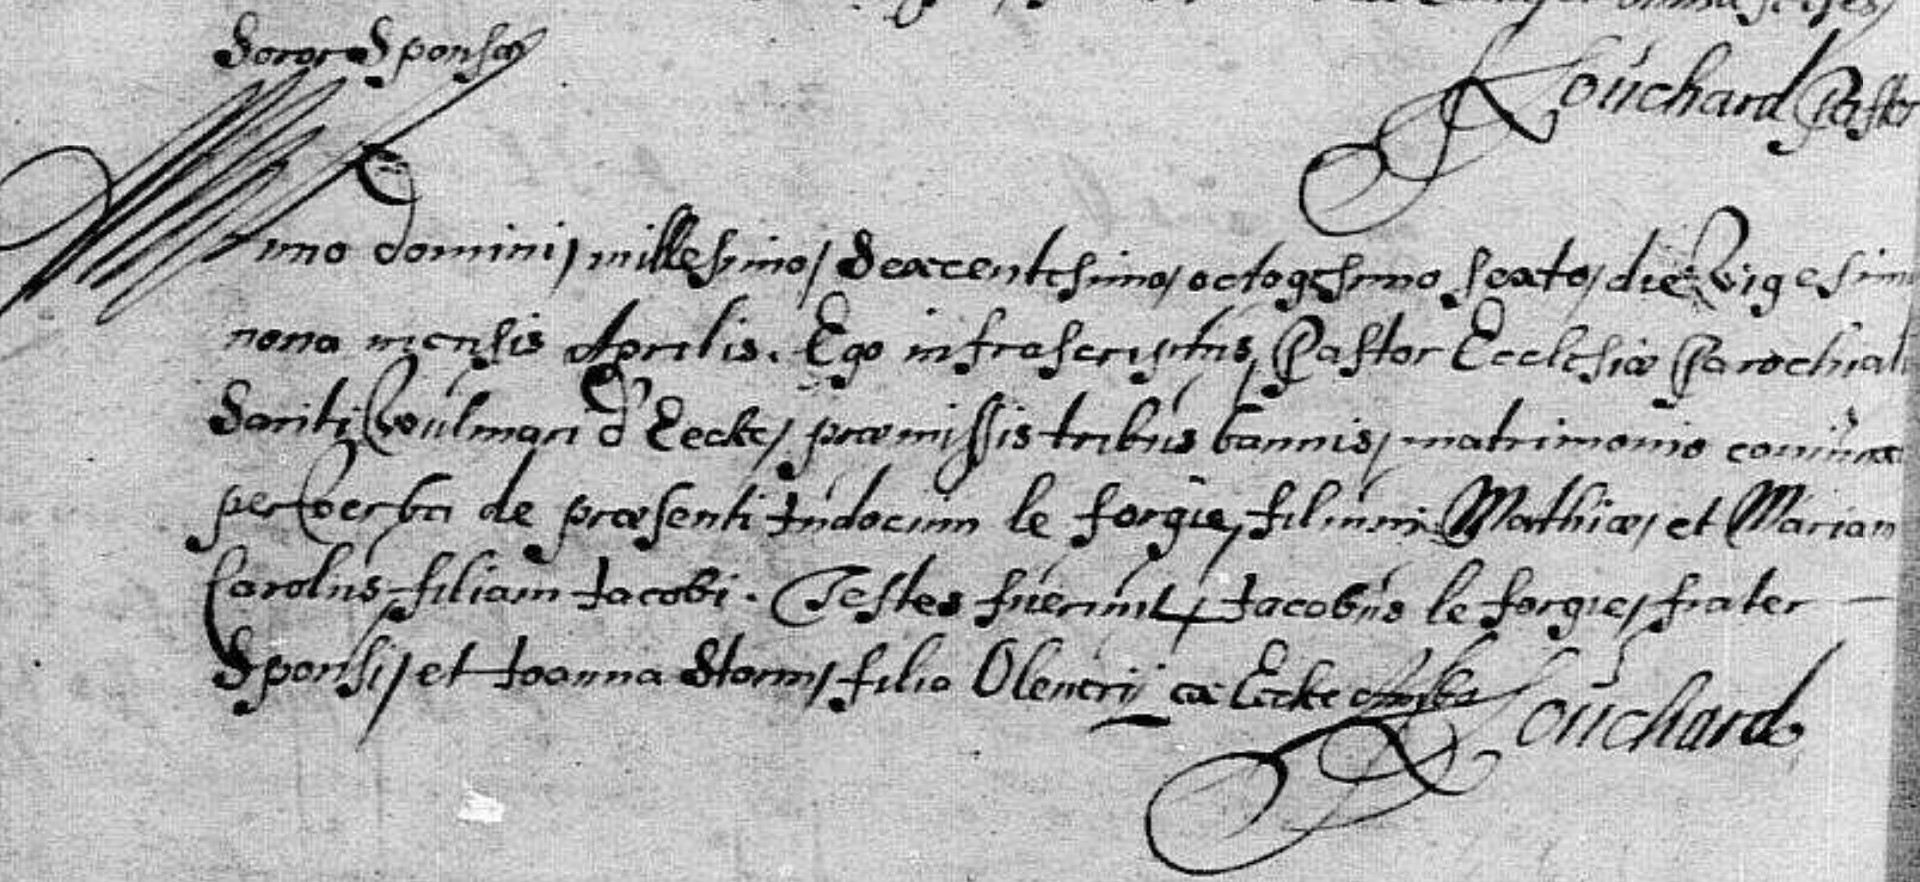 Soror Sponsæ
Pastor
Anno domini, millesimo, Sexcentesimo, octogesimo sexto, die Vigesim
nona mensis Aprilis. Ego infrascriptus, Pastor Ecclesiæ Parochial
Sancti Vuulmari d'Eecke, præmissis tribus bannis, matrimonio coniunx
per verba de præsenti Judocum le forgie, filium Mathiæ, et Mariam
Carolus filiam Jacobi. Testes fuerunt, Jacobus le forgie, frater
Sponsi, et Joanna Storm, filia Oleuerij ex Eecke